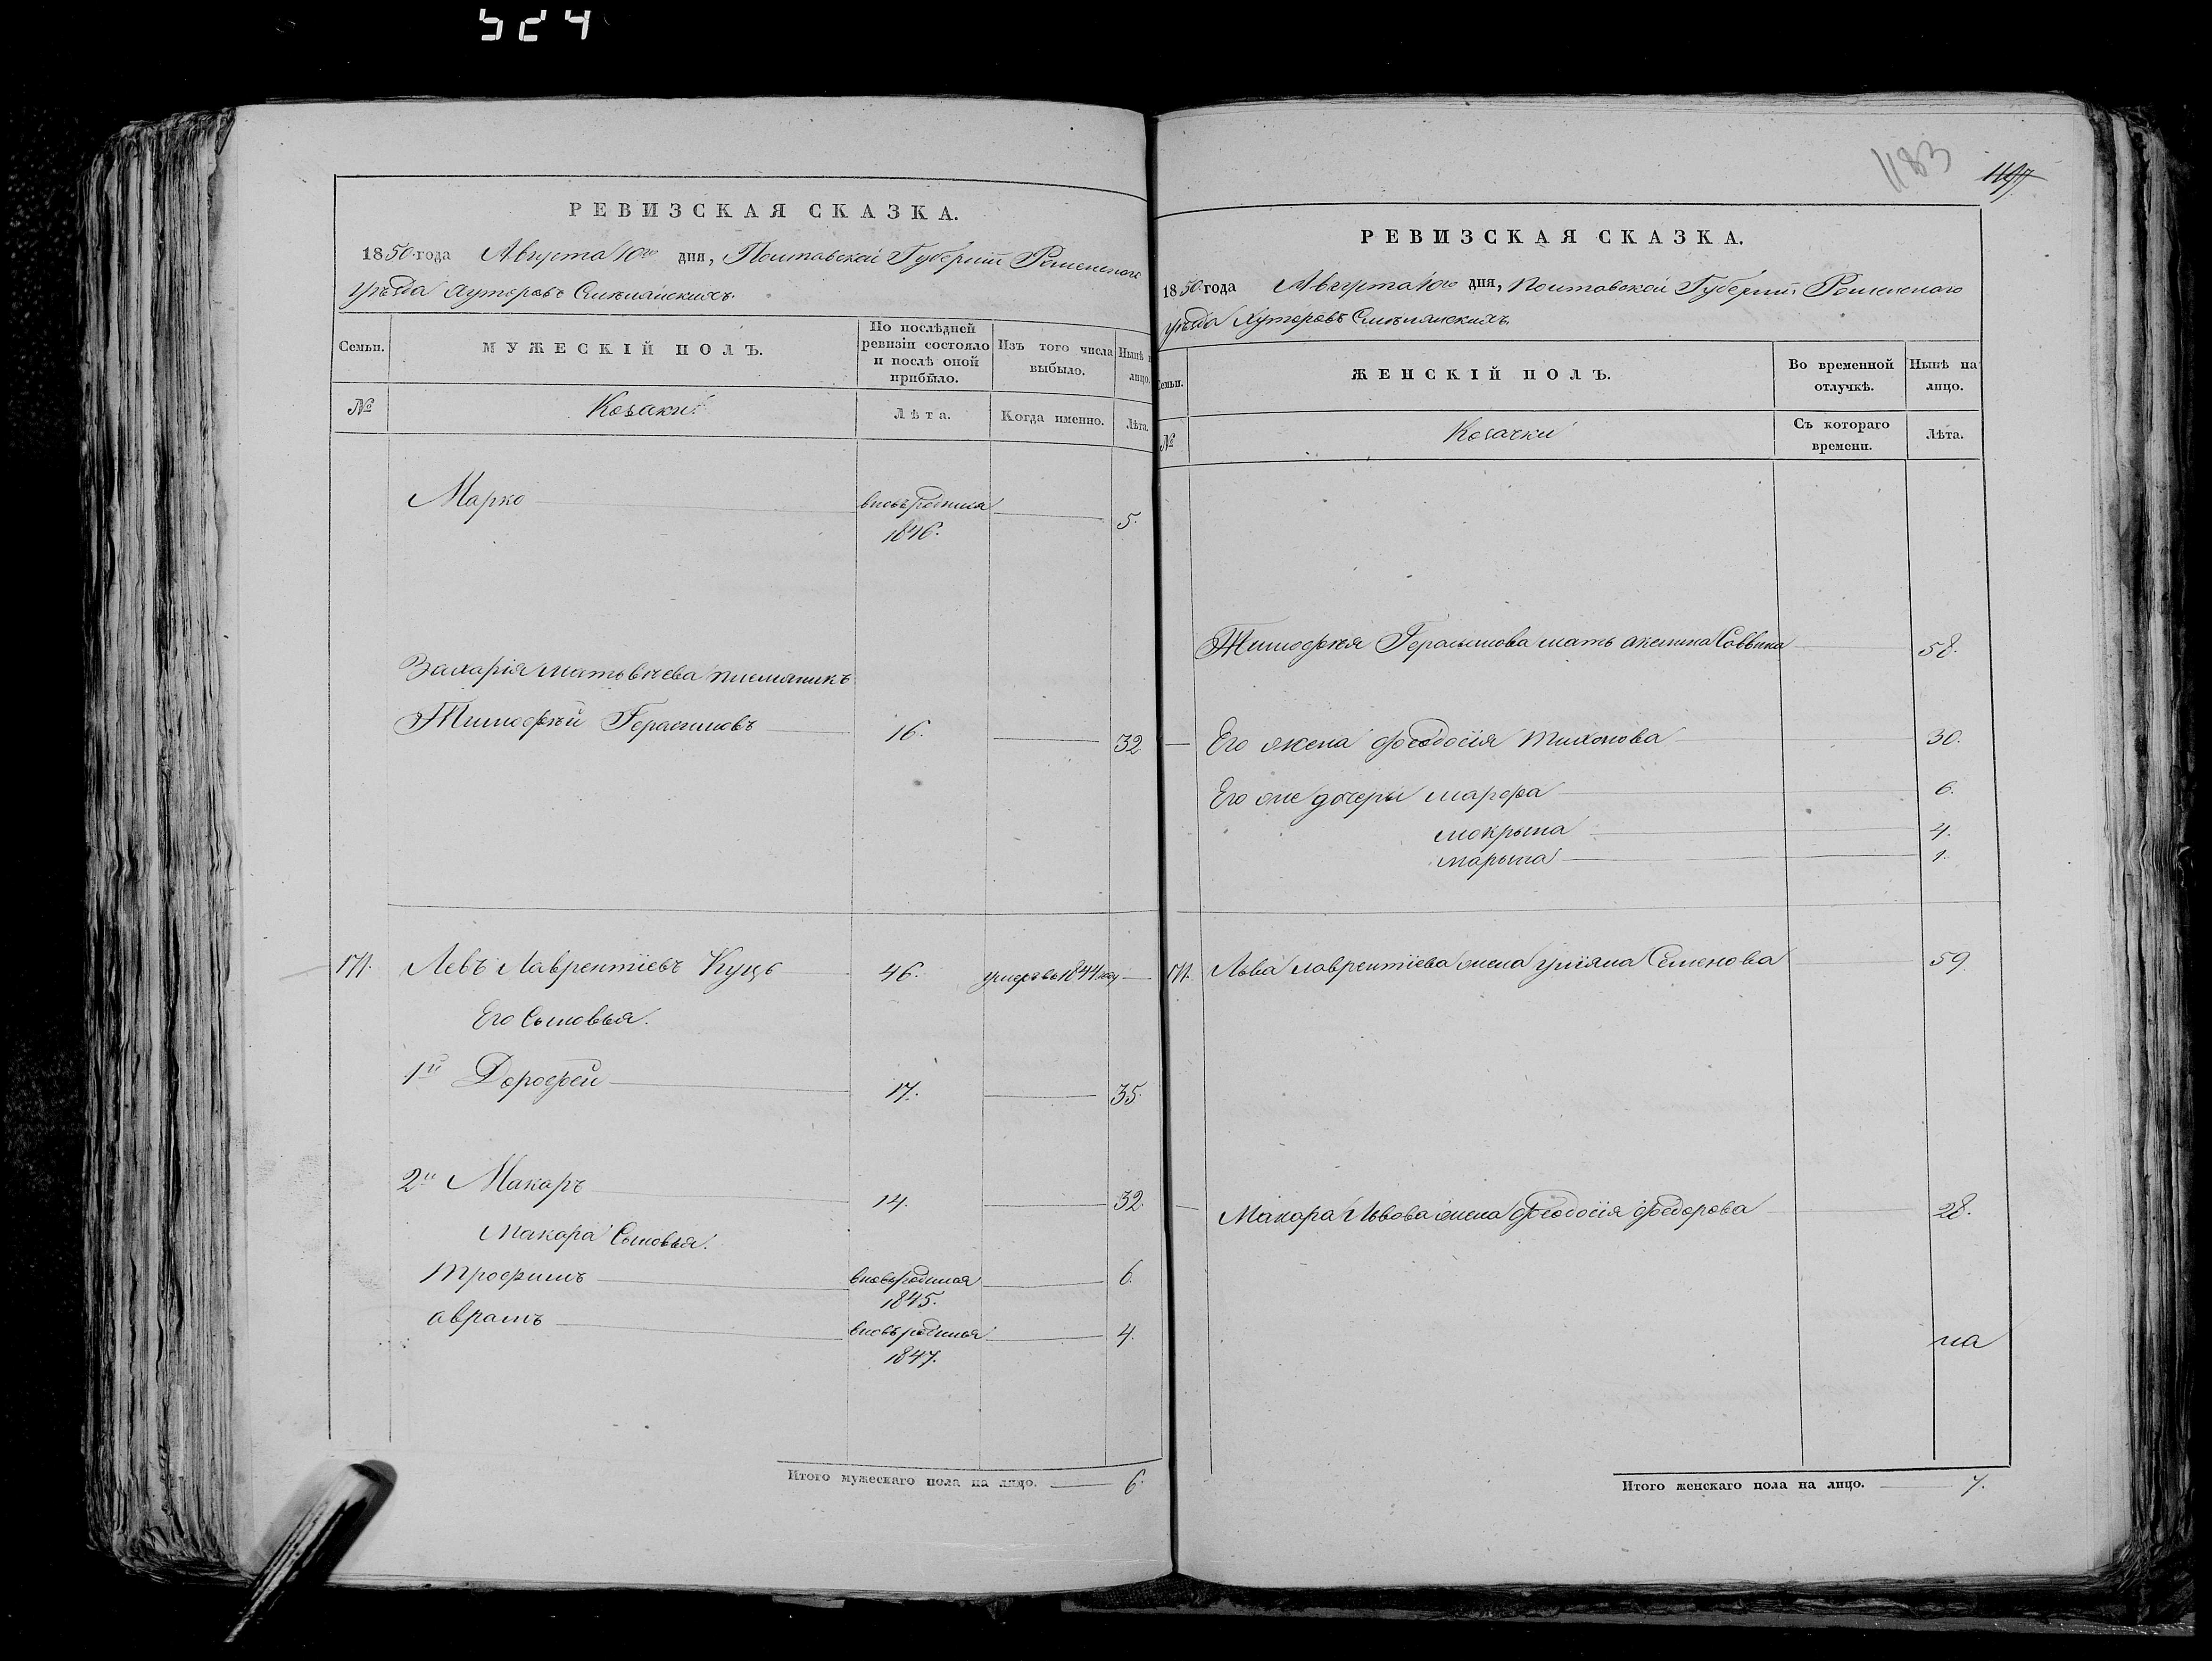 524
РЕВИЗСКАЯ СКАЗКА.
1850 года Августа 10го дня, Полтавской Губернии Роменского
уѣзда Хуторовъ Смѣлянскихъ.
Семьи.
МУЖЕСКІЙ ПОЛЪ.
По послѣдней ревизіи состояло и послѣ оной прибыло.
Изъ того числа выбыло.
Нынѣ на лицо.
№
Козаки
Лѣта.
Когда именно.
Лѣта.
Марко вновьродился 1846. 5.
Захарія Матвѣева племяникъ
Тимофѣй Герасимовъ 16. 32
171. Левъ Лаврентіевъ Куць 46. умеръ въ 1844 году
Его Сыновья.
1й Дорофей 17. 35.
2й Макаръ 14. 32.
Макара Сыновья.
Трофимъ вновьродился 1845. 6.
Аврамъ вновьродился 1847. 4.
Итого мужескаго пола на лицо. 6.
1183
1197
РЕВИЗСКАЯ СКАЗКА.
1850 года Августа 10го дня, Полтавской Губернии Роменского
уѣзда Хуторовъ Смѣлянскихъ
Семьи.
ЖЕНСКІЙ ПОЛЪ.
Во временной отлучкѣ.
Нынѣ на лицо.
№
Козачки
Съ котораго времени.
Лѣта.
Тимофѣя Герасимова мать Акилина Саввина 58.
Его жена Феодосія Тихонова 30.
Его же дочери Марфа 6.
Мокрына 4.
Марына 1.
171. Льва Лаврентіева жена Уліяна Семенова 59.
Макара Львова жена Феодосія Федорова 28.
на
Итого женскаго пола на лицо. 7.